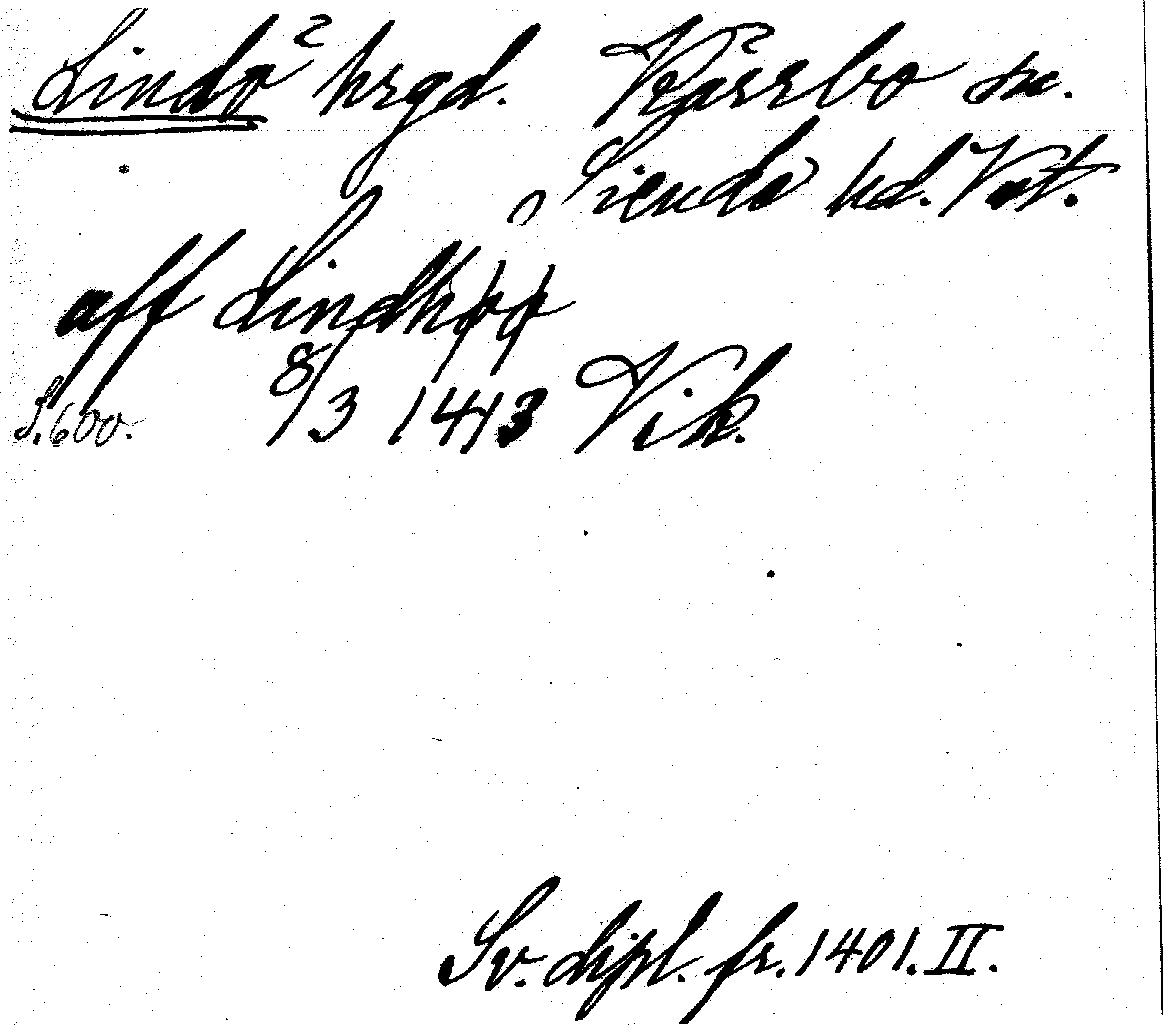 Lindö hrgd. Kärrbo sn.
Siende hd. Vst.
aff Lindhøø
S. 600. 8/3 1413 Vik.
Sv. dipl. fr. 1401. II.